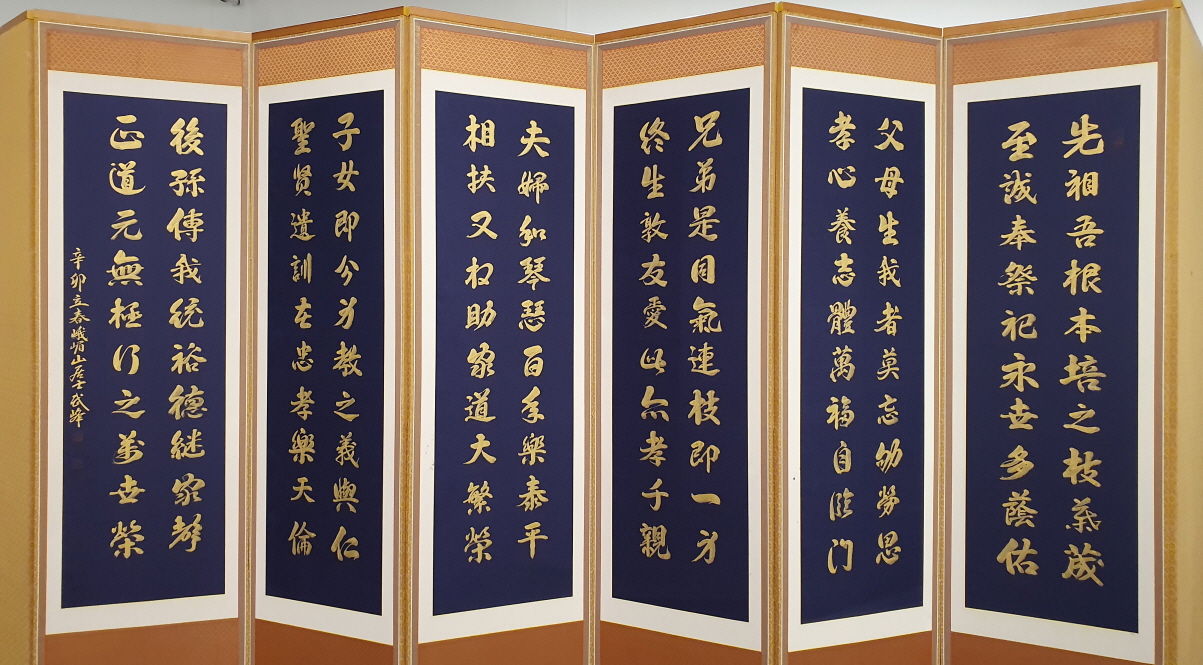 先祖吾根本培之枝葉茂
至誠奉祭祀永世多蔭佑
父母生我者莫忘劬勞恩
孝心養志體萬福自臨門
兄弟是同氣連枝即一身
終生敦友愛此亦孝于親
夫婦和琴瑟百年樂泰平
相扶又相助家道大繁榮
子女即分身教之義與仁
聖賢遺訓在忠孝樂天倫
後孫傳我統裕德継家聲
正道元無極行之萬世榮
辛卯立春峨嵋山居士峰